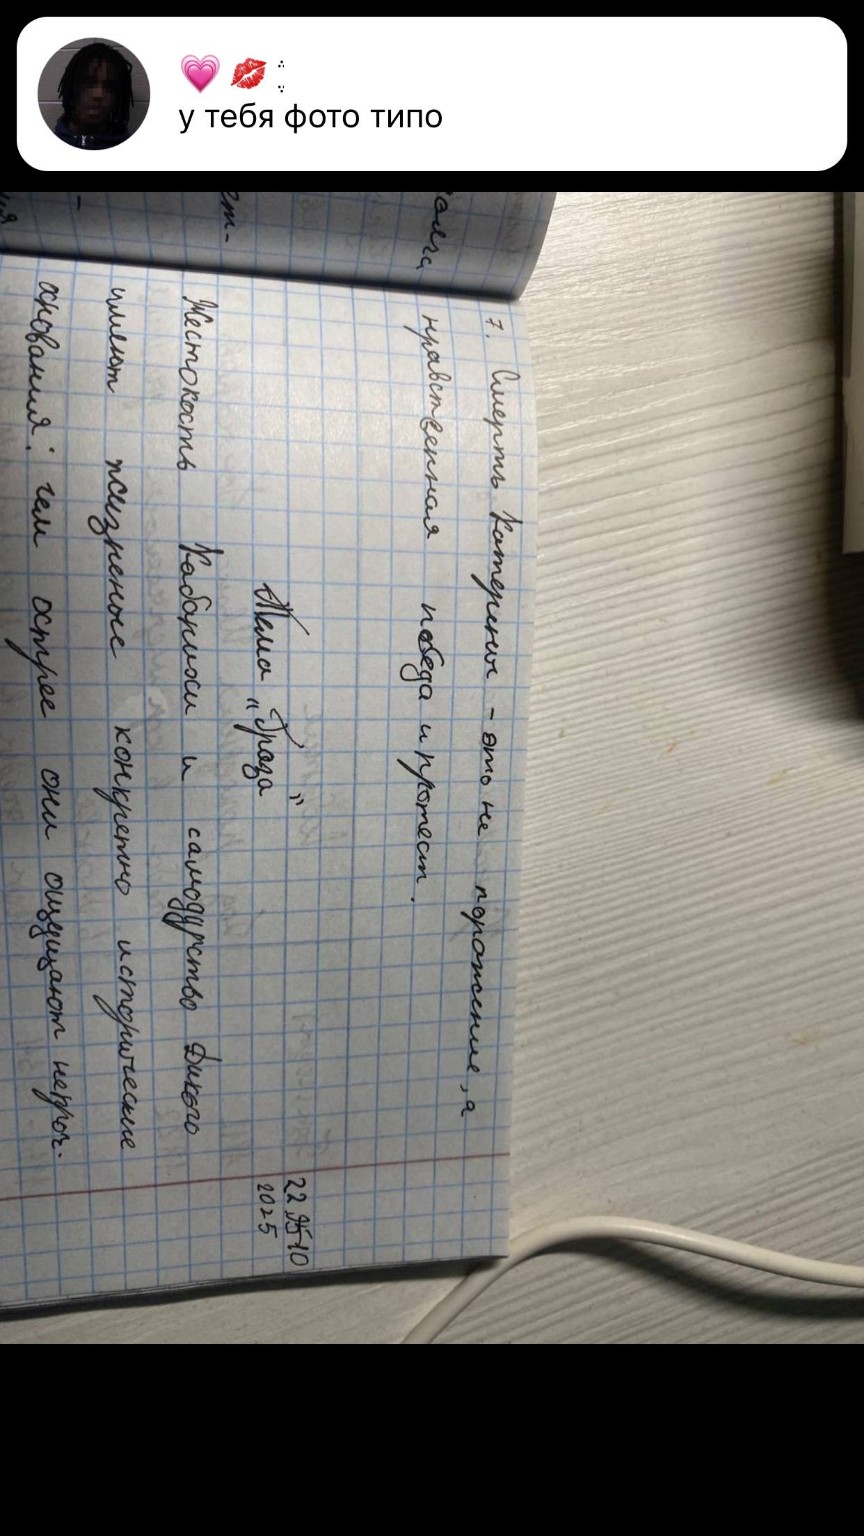 💗 💋 ;
у тебя фото типо
7. Смерть Катерины - это не поражение, а
нравственная победа и протест.
22.10
2025
Тема "Гроза"
Жестокость Кабанихи и самодурство Дикого
имеют жизненые конкретно исторические
основания: чем острее они ощущают непроч-